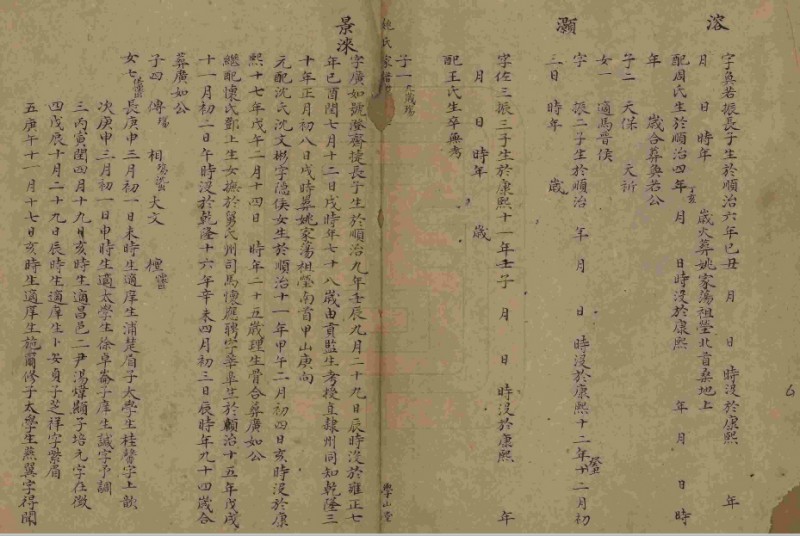 溶
字奐若振長子生於順治六年己丑 月 日 時没於康熙 年
月 日 時年 歲火葬姚家蕩祖塋北首桑地上
配周氏生於順治四年丁亥 月 日時没於康熙 年 月 日 時
年 歲合葬奐若公
子二 天保 天祈
女一 適馬晋侯
灝
字 振二子生於順治 年 月 日 時没於康熙十二年癸丑十二月初
三日 時年 歲
字佐三振三子生於康熙十一年壬子 月 日 時没於康熙 年
月 日 時年 歲
配王氏生卒無考
子一 九歲殤
姚氏家譜
學山堂
景淶
字廣如號澄齋捷長子生於順治九年壬辰九月二十九日辰時没於雍正七
年己酉閏七月十二日戌時年七十八歲由貢監生考授直隸州同知乾隆三
十年正月初八日戌時葬姚家蕩祖塋南首甲山庚向
元配沈氏沈文彬字隱侯女生於順治十一年甲午二月初四日亥時没於康
熙十七年戊午二月十四日 時年二十五歲理生骨合葬廣如公
繼配懷氏鄞上生女撫於舅氏州司馬懷應聘字藥阜生於順治十五年戊戌
十一月初二日午時没於乾隆十六年辛未四月初三日辰時年九十四歲合
葬廣如公
子四 傳殤 相 大文 檀
女七 長庚申三月初一日未時生適庠生浦楚眉子太學生桂馨字上歆
次庚申三月初一日申時生適太學生徐卓崙子庠生誠字予調
三丙寅閏四月十九日亥時生適昌邑二尹馮煒顯子培元字在徵
四戊辰十月二十九日辰時生適庠生卜安貞子芝祥字紫眉
五庚午十一月十七日亥時生適庠生施爾修子太學生燕翼字得聞